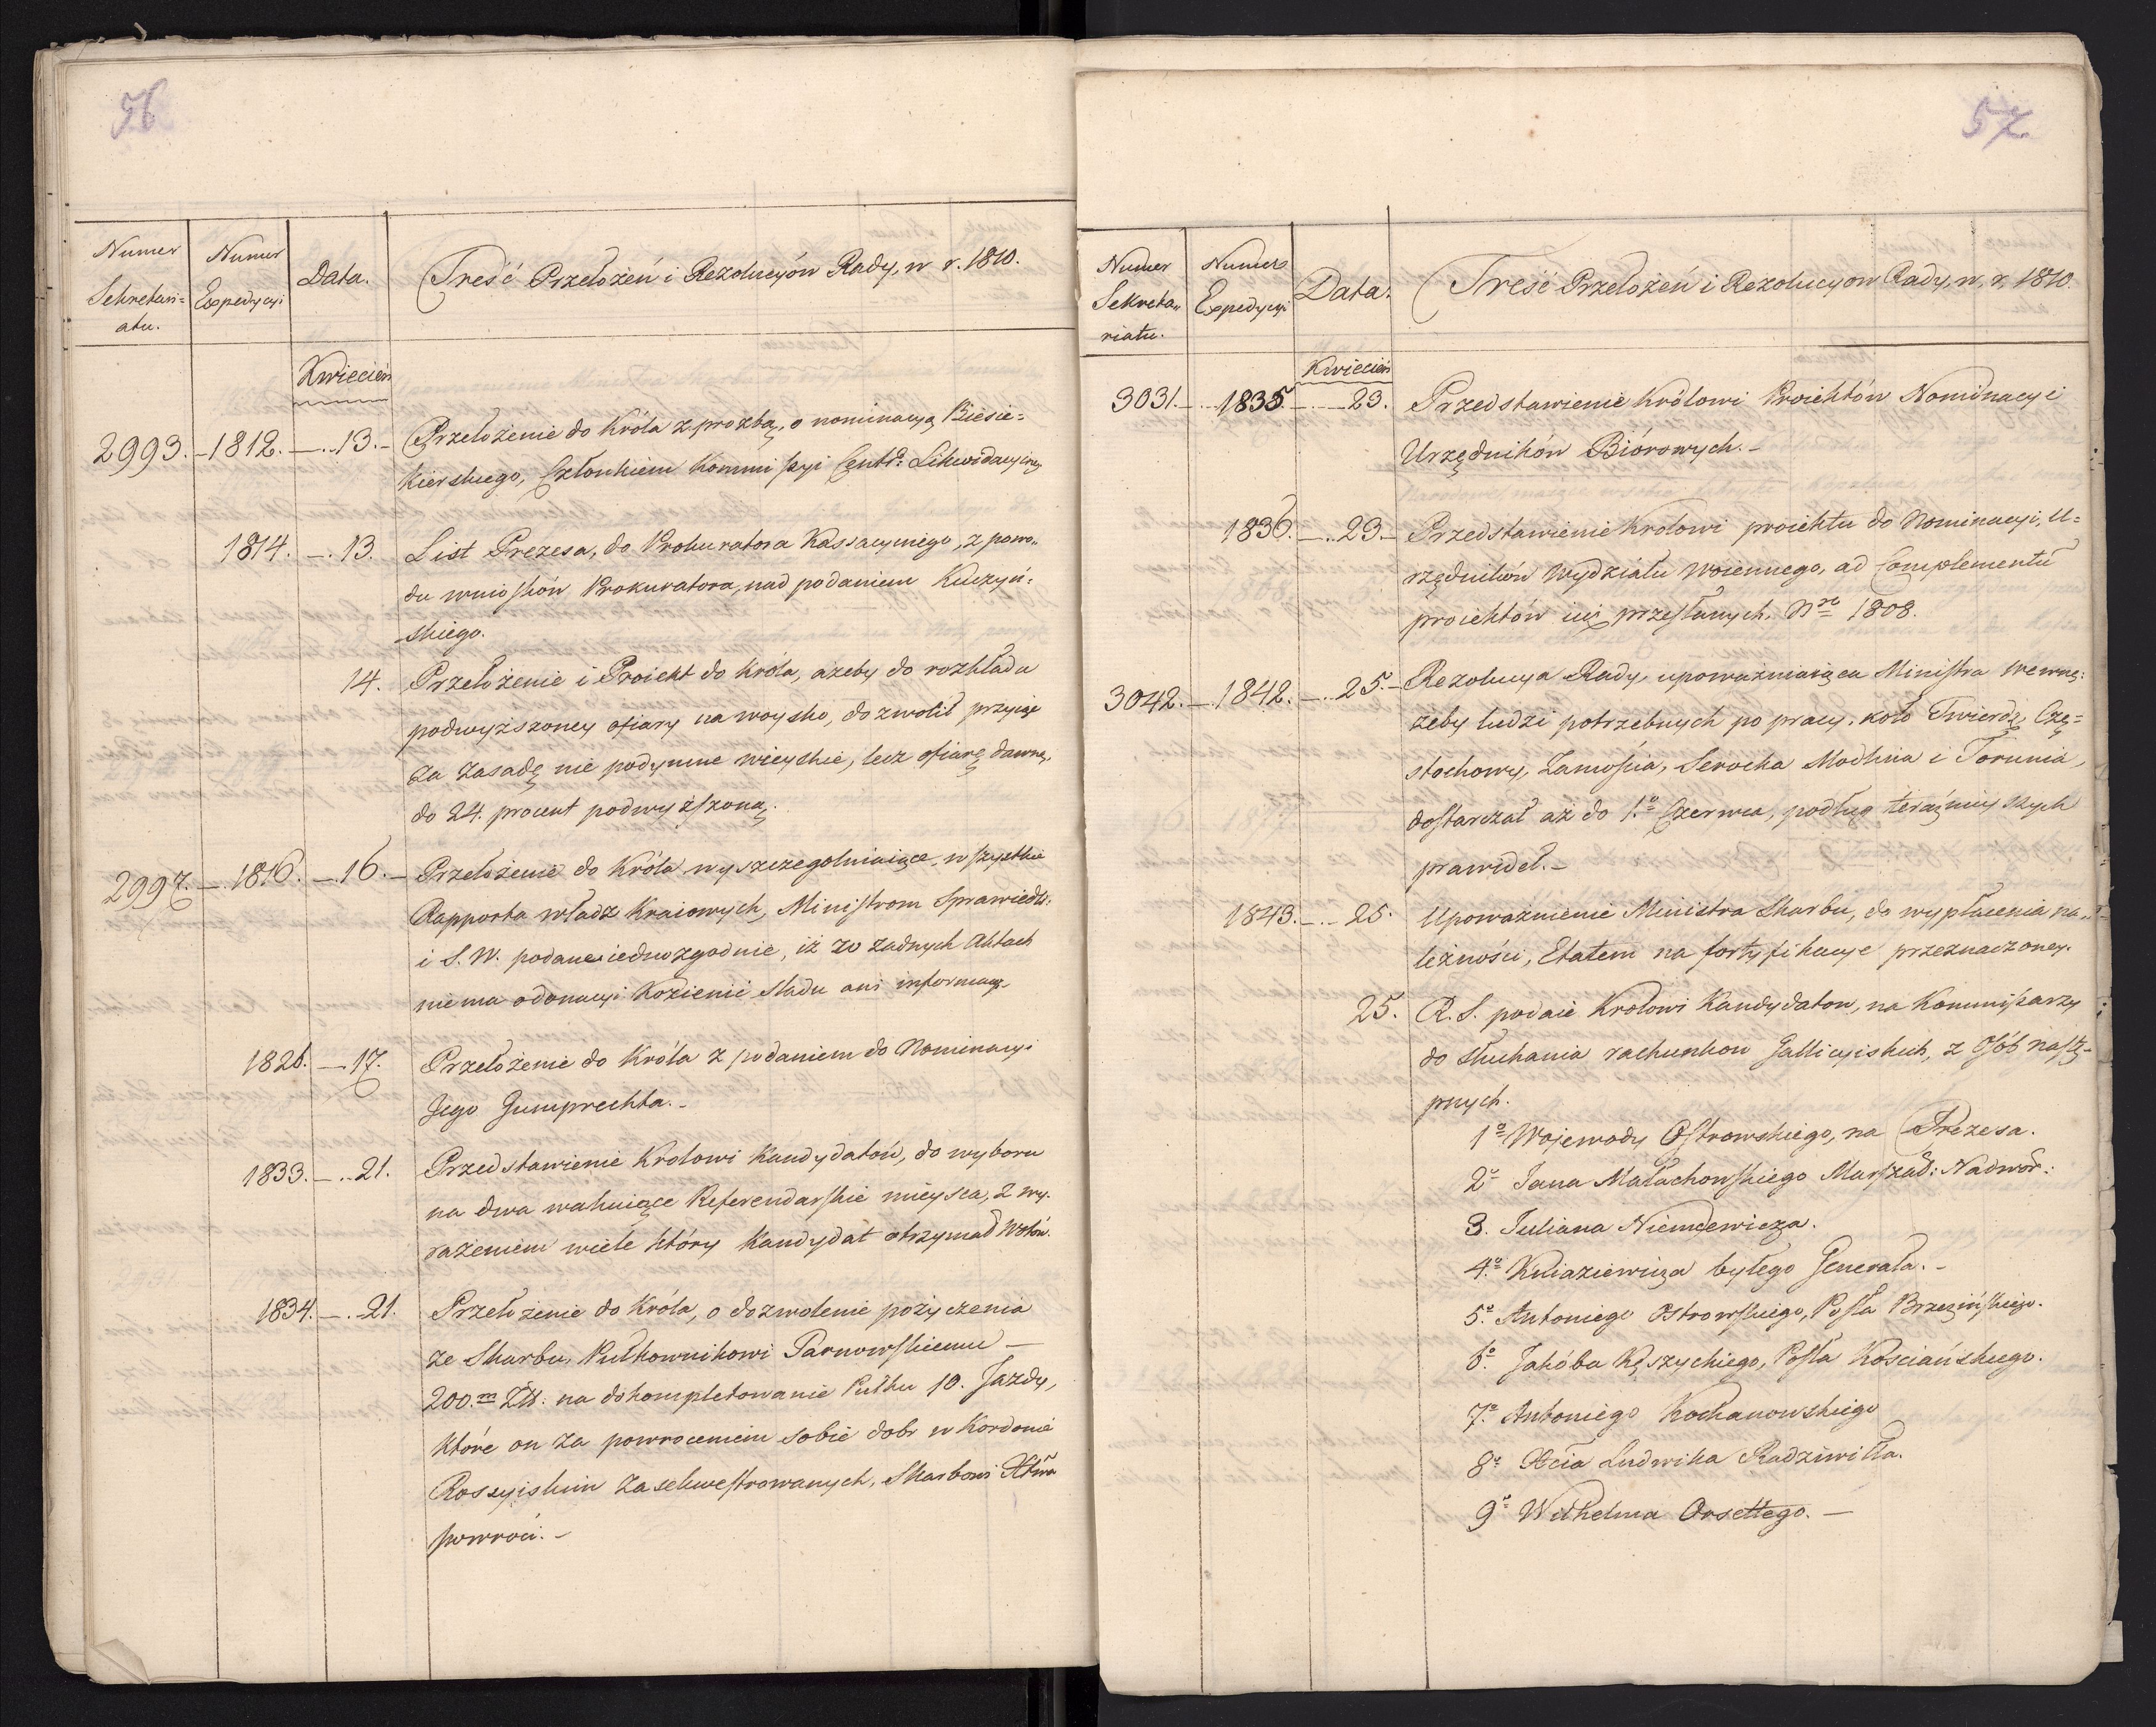 56
Numer
Sekretari=
atu.
Numer
Expedycyi
Data.
Treść Przełożeń i Rezolucyów Rady, w r. 1810.
Kwiecień
2993. – 1812. – 13. – Przełożenie do Króla z prozbą, o nominacyą Biesie=
kierskiego, Członkiem Kommissyi Centr: Likwidacyiney
1814. – 13. List Prezesa, do Prokuratora Kassacyinego, z powo„
du wniosków Prokuratora, nad podaniem Kuczyń=
skiego.
14. Przełożenie i Proiekt do Króla, ażeby do rozkładu
podwyższoney ofiary na woysko, dozwolił przyiąć
za zasadę nie podymne wieyskie, lecz ofiarę dawną,
do 24. procent podwyższoną.
2997. – 1816. – 16. – Przełożenie do Króla wyszczegolniaiące, wszystkie
Rapporta władz Kraiowych, Ministrom Sprawiedli:
i S. W. podane iednozgodnie, iż w żadnych Aktach
niema o donacyi Kozienic sladu ani informacyi
1826. – 17. Przełożenie do Króla z podaniem do Nominacyi
Jego Gumprechta. –
1833. – 21. Przedstawienie Krolowi Kandydatów, do wyboru
na dwa wakuiące Referendarskie mieysca, z wy.
rażeniem wiele który Kandydat otrzymał Wotów.
1834. – 21. Przełożenie do Króla, o dozwolenie pożyczenia
ze Skarbu, Pułkownikowi Tarnowskiemu –
200.m Zł: na dokompletowanie Pułku 10. Jazdy,
które on za powroceniem sobie dobr w Kordonie
Rossyiskim zasekwestrowanych, Skarbowi Xtwa
powroci. –
57
Numer
Sekreta„
riatu.
Numer
Expedycyi
Data.
Treść Przełożeń i Rezolucyow Rady, w, r, 1810.
Kwiecień
3031. – 1835. – 23. Przedstawienie Królowi Proiektów Nominacyi
Urzędników Biórowych. –
1836. – 23. – Przedstawienie Krolowi proiektu do Nominacyi, U=
rzędników Wydziału Woiennego, ad Complementu
proiektów iuż przesłanych. Nro 1808.
3042. – 1842. – 25. – Rezolucya Rady, upoważniaiąca Ministra Wewnę:
żeby ludzi potrzebnych po pracy, koło Twierdz, Czę=
stochowy, Zamościa, Serocka Modlina i Torunia,
dostarczał aż do 1.o Czerwca, podług teraźnieyszych
prawideł. –
1843. – 25. Upoważnienie Ministra Skarbu, do wypłacenia na„
leżności, Etatem na fortyfikacye przeznaczoney.
25. R. S. podaie Krolowi Kandydatow, na Kommissarzy
do słuchania rachunkow Gallicyiskich, z Osób nastę-
pnych.
1o Wojewody Ostrowskiego, na Prezesa.
2o Jana Małachowskiego Marszał: Nadwor.:
3. Juliana Niemcewicza.
4.o Kniaziewicza byłego Generała. –
5.o Antoniego Ostrowskiego, Posła Brzezińskiego.
6.o Jakóba Kęszyckiego, Posła Kościańskiego.
7.o Antoniego Kochanowskiego
8o Xcia Ludwika Radziwiłła.
9o Wilhelma Orsettego. –